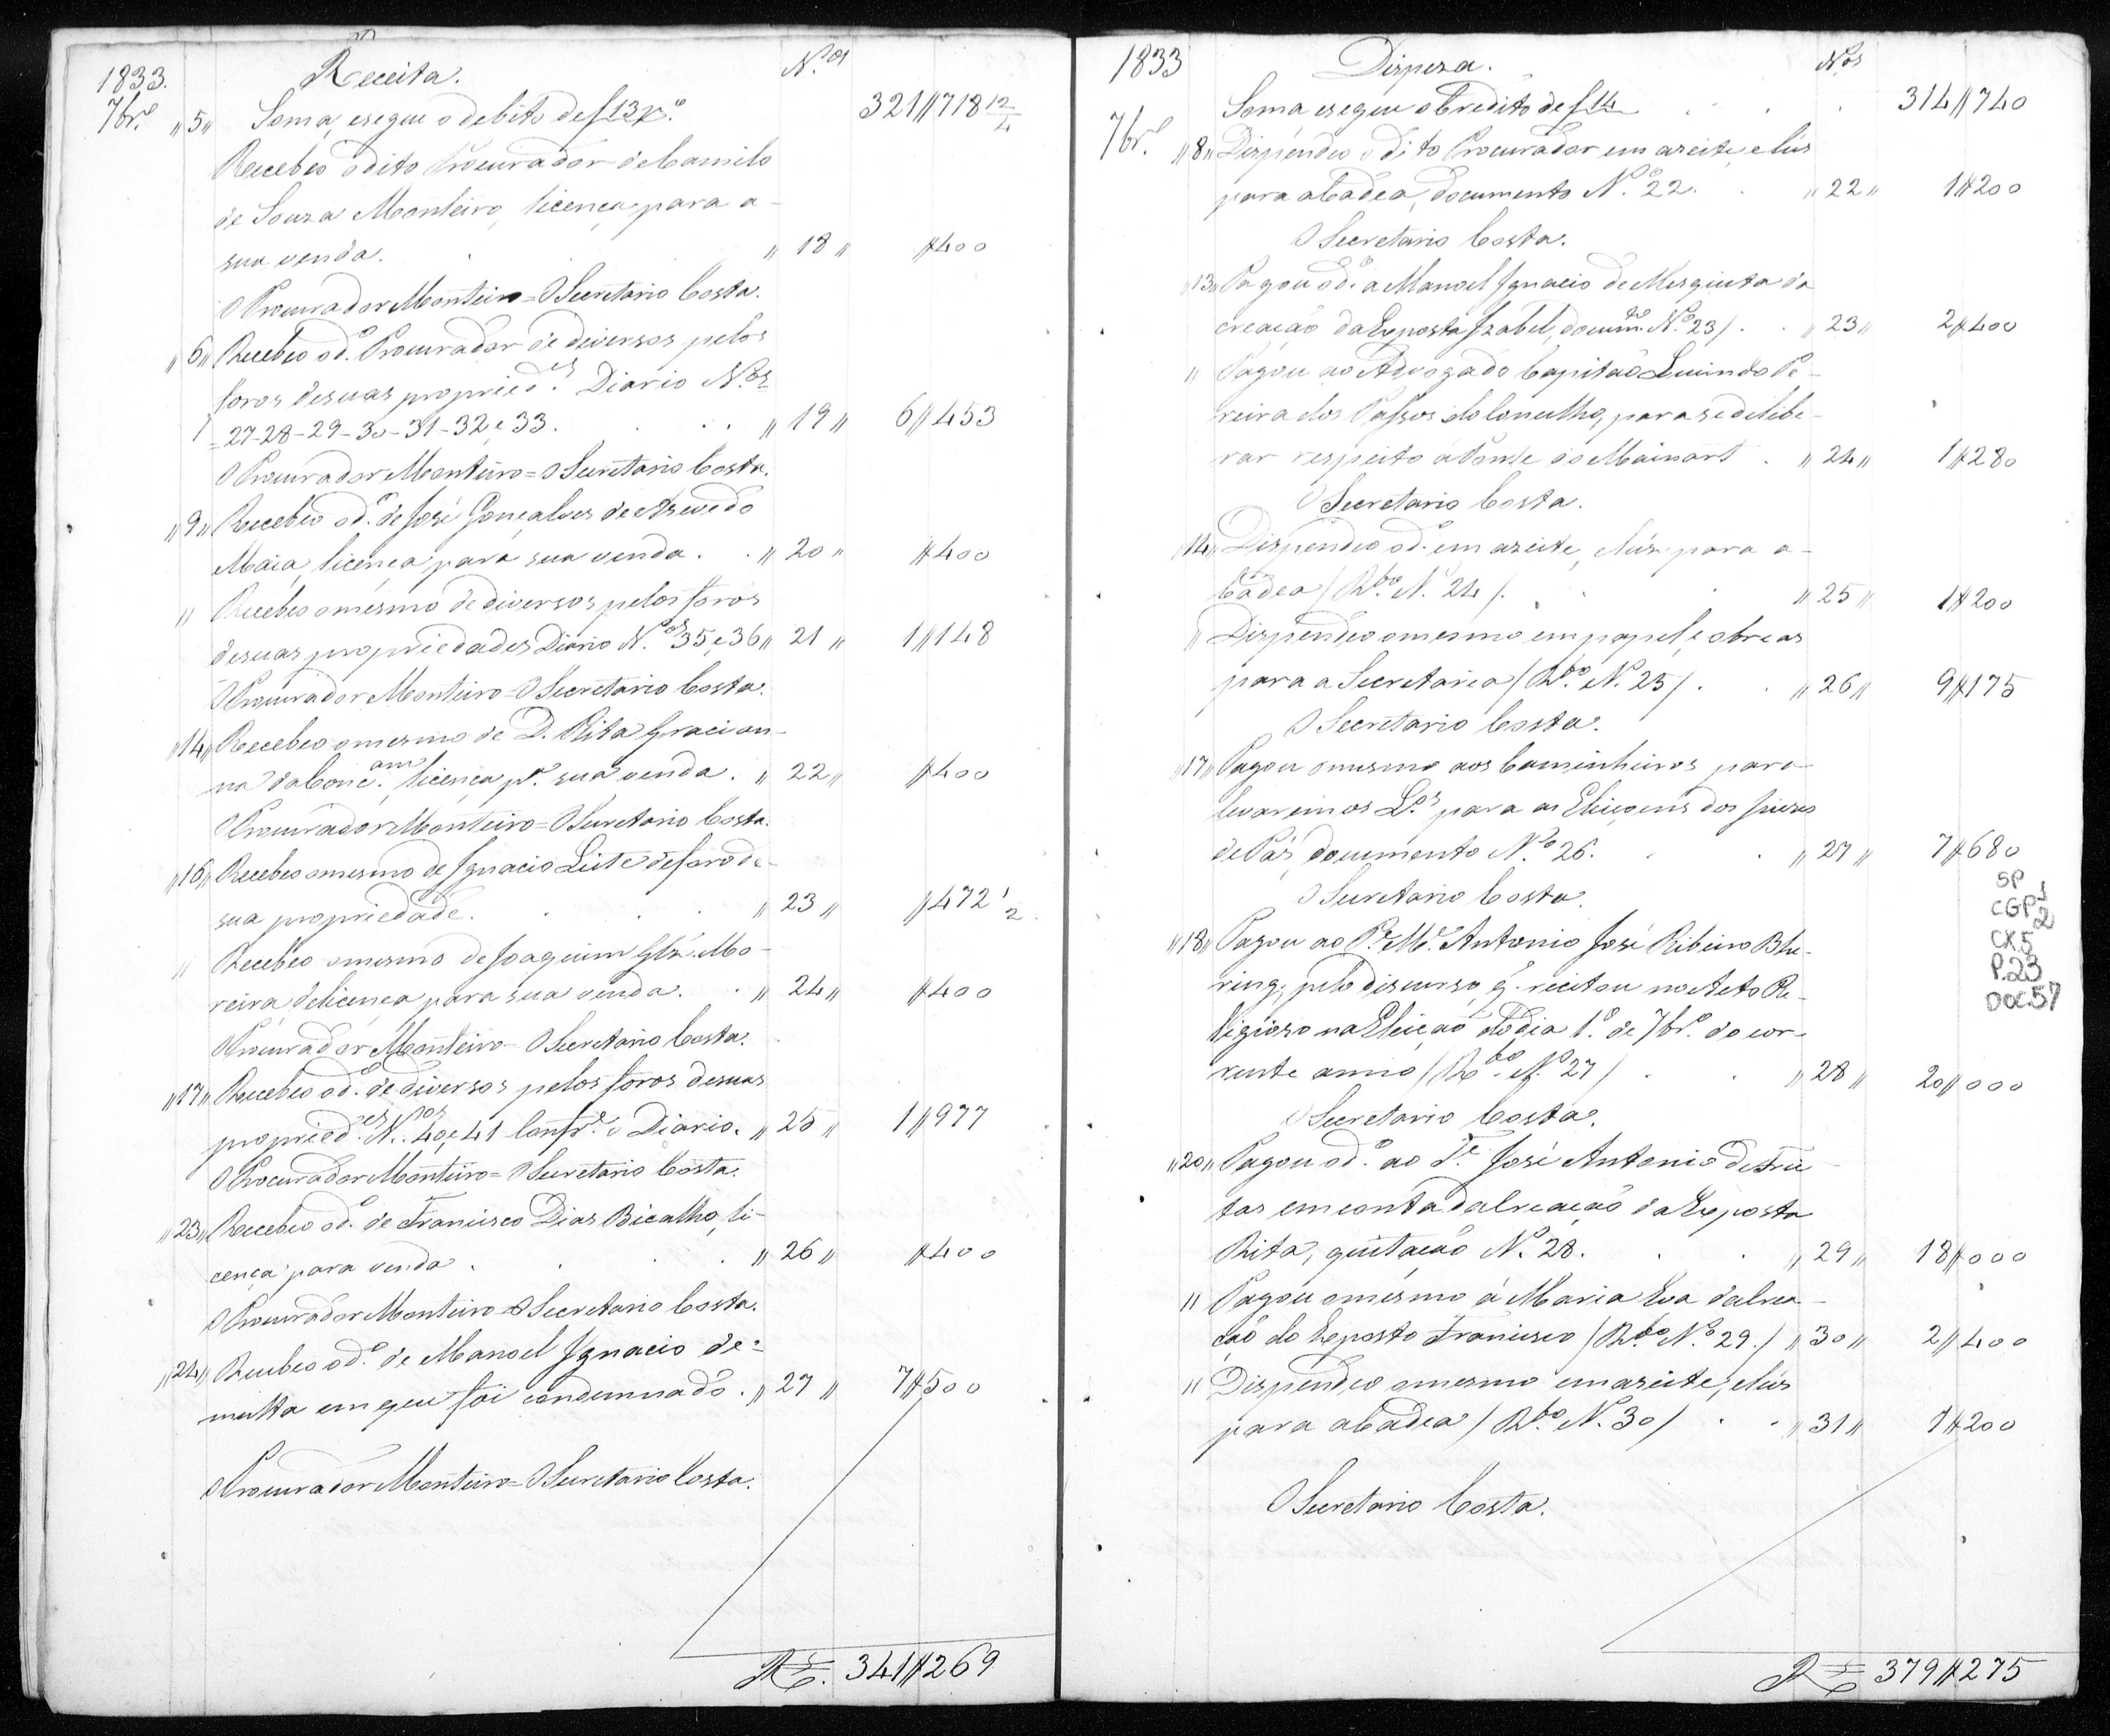 1833. Receita. N.os
7br.o "5" Soma, esegue o debito de f 13 321//718 12/4
Recebeo o dito Procurador de Camilo
de Souza Monteiro, licença para a-
sua venda. " 18 " //400
O Procurador Monteiro = O Secretario Costa.
"6" Recebeo o d.o Procurador de diversos pelos
foros desuas propried.es Diario N.os
27-28-29-30-31-32 e 33. " 19 " 6//453
O Procurador Monteiro = O Secretario Costa.
"9" Recebeo o d.o de José Gonçalves de Asevedo
Maia, licença para sua venda. " 20 " //400
" Recebeo omesmo de diversos pelos foros
desuas propriedades Diario N.os 35, e 36 " 21 " 1//148
O Procurador Monteiro = O Secretario Costa.
"14" Recebeo omesmo de D. Rita Gracian-
na daConc.am, licença p.a sua venda. " 22 " //400
O Procurador Monteiro = O Secretario Costa.
"16" Recebeo omesmo de Ignacio Leite deforo de-
sua propriedade. " 23 " //472 1/2
" Recebeo omesmo de Joaquim Glz. Mo-
reira delicença para sua venda. " 24 " //400
O Procurador Monteiro = O Secretario Costa.
"17" Recebeo o d.o de diversos pelos foros desuas
propried.es N.os 40, e 41 Conf.e o Diario. " 25 " 1//977
O Procurador Monteiro = O Secretario Costa.
"23" Recebeo o d.o de Francisco Dias Bicalho, li-
cença para venda. " 26 " //400
O Procurador Monteiro = O Secretario Costa.
"24" Recebeo o d.o de Manoel Ignacio de =
multa em que foi condemnado. " 27 " 7//500
O Procurador Monteiro = O Secretario Costa.
R. 341//269
1833 Dispeza. N.os
Soma esegue oCredito de f 14 314//740
7br.o "8" Dispendeo o dito Procurador em aseite, elus
para aCadea, documento N.o 22. " 22 " 1//200
O Secretario Costa.
"13" Pagou o d.o a Manoel Ignacio de Mesquita da
creação daExposta Izabel, docum.to N.o 23/. " 23 " 2//400
" Pagou ao Advogado Capitão Lucindo Pe-
reira dos Passos doConselho, para se delibe-
rar respeito a Ponte do Mainart. " 24 " 1//280
O Secretario Costa.
"14" Dispendeo o d.o em aseite, elús para a-
Cadea /R.bo N. 24/. " 25 " 1//200
" Dispendeo omesmo em papel, e obreas
para a Secretaria /R.bo N. 25/. " 26 " 9//175
O Secretario Costa.
"17" Pagou omesmo aos Caminheiros para
levarem os L.os para as Eleiçoens dos Juizes
de Pás, documento N.o 26. " 27 " 7//680
O Secretario Costa.
"18" Pagou ao P.e M.e Antonio José Ribeiro Bhe-
ring, pelo discurso q. recitou no Acto Re-
ligioso na Eleição do dia 1.o de 7br.o do cor-
rente anno /R.bo N. 27/ " 28 " 20//000
O Secretario Costa.
"20" Pagou o d.o ao T.e José Antonio de Frei-
tas em conta dalreação da Exposta
Rita, quitação N. 28. " 29 " 18//000
" Pagou omesmo á Maria Eva dalrea-
ção do Exposto Francisco /R.bo N.o 29./ " 30 " 2//400
" Dispendeo omesmo em aseite, elús
para aCadea /R.bo N. 30/ " 31 " 1//200
O Secretario Costa.
R 379//275
SP
CGP 1
2
CX 5
P.23
DOC.57